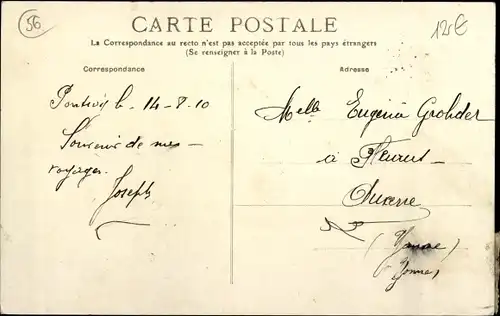 56
12€
CARTE POSTALE
La Correspondance au recto n'est pas acceptée par tous les pays étrangers
(Se renseigner à la Poste)
Correspondance
Adresse
le 14-8-10
Souvenir de mes
voyages.
Joseph
Melle Eugénie
à
(Yonne)